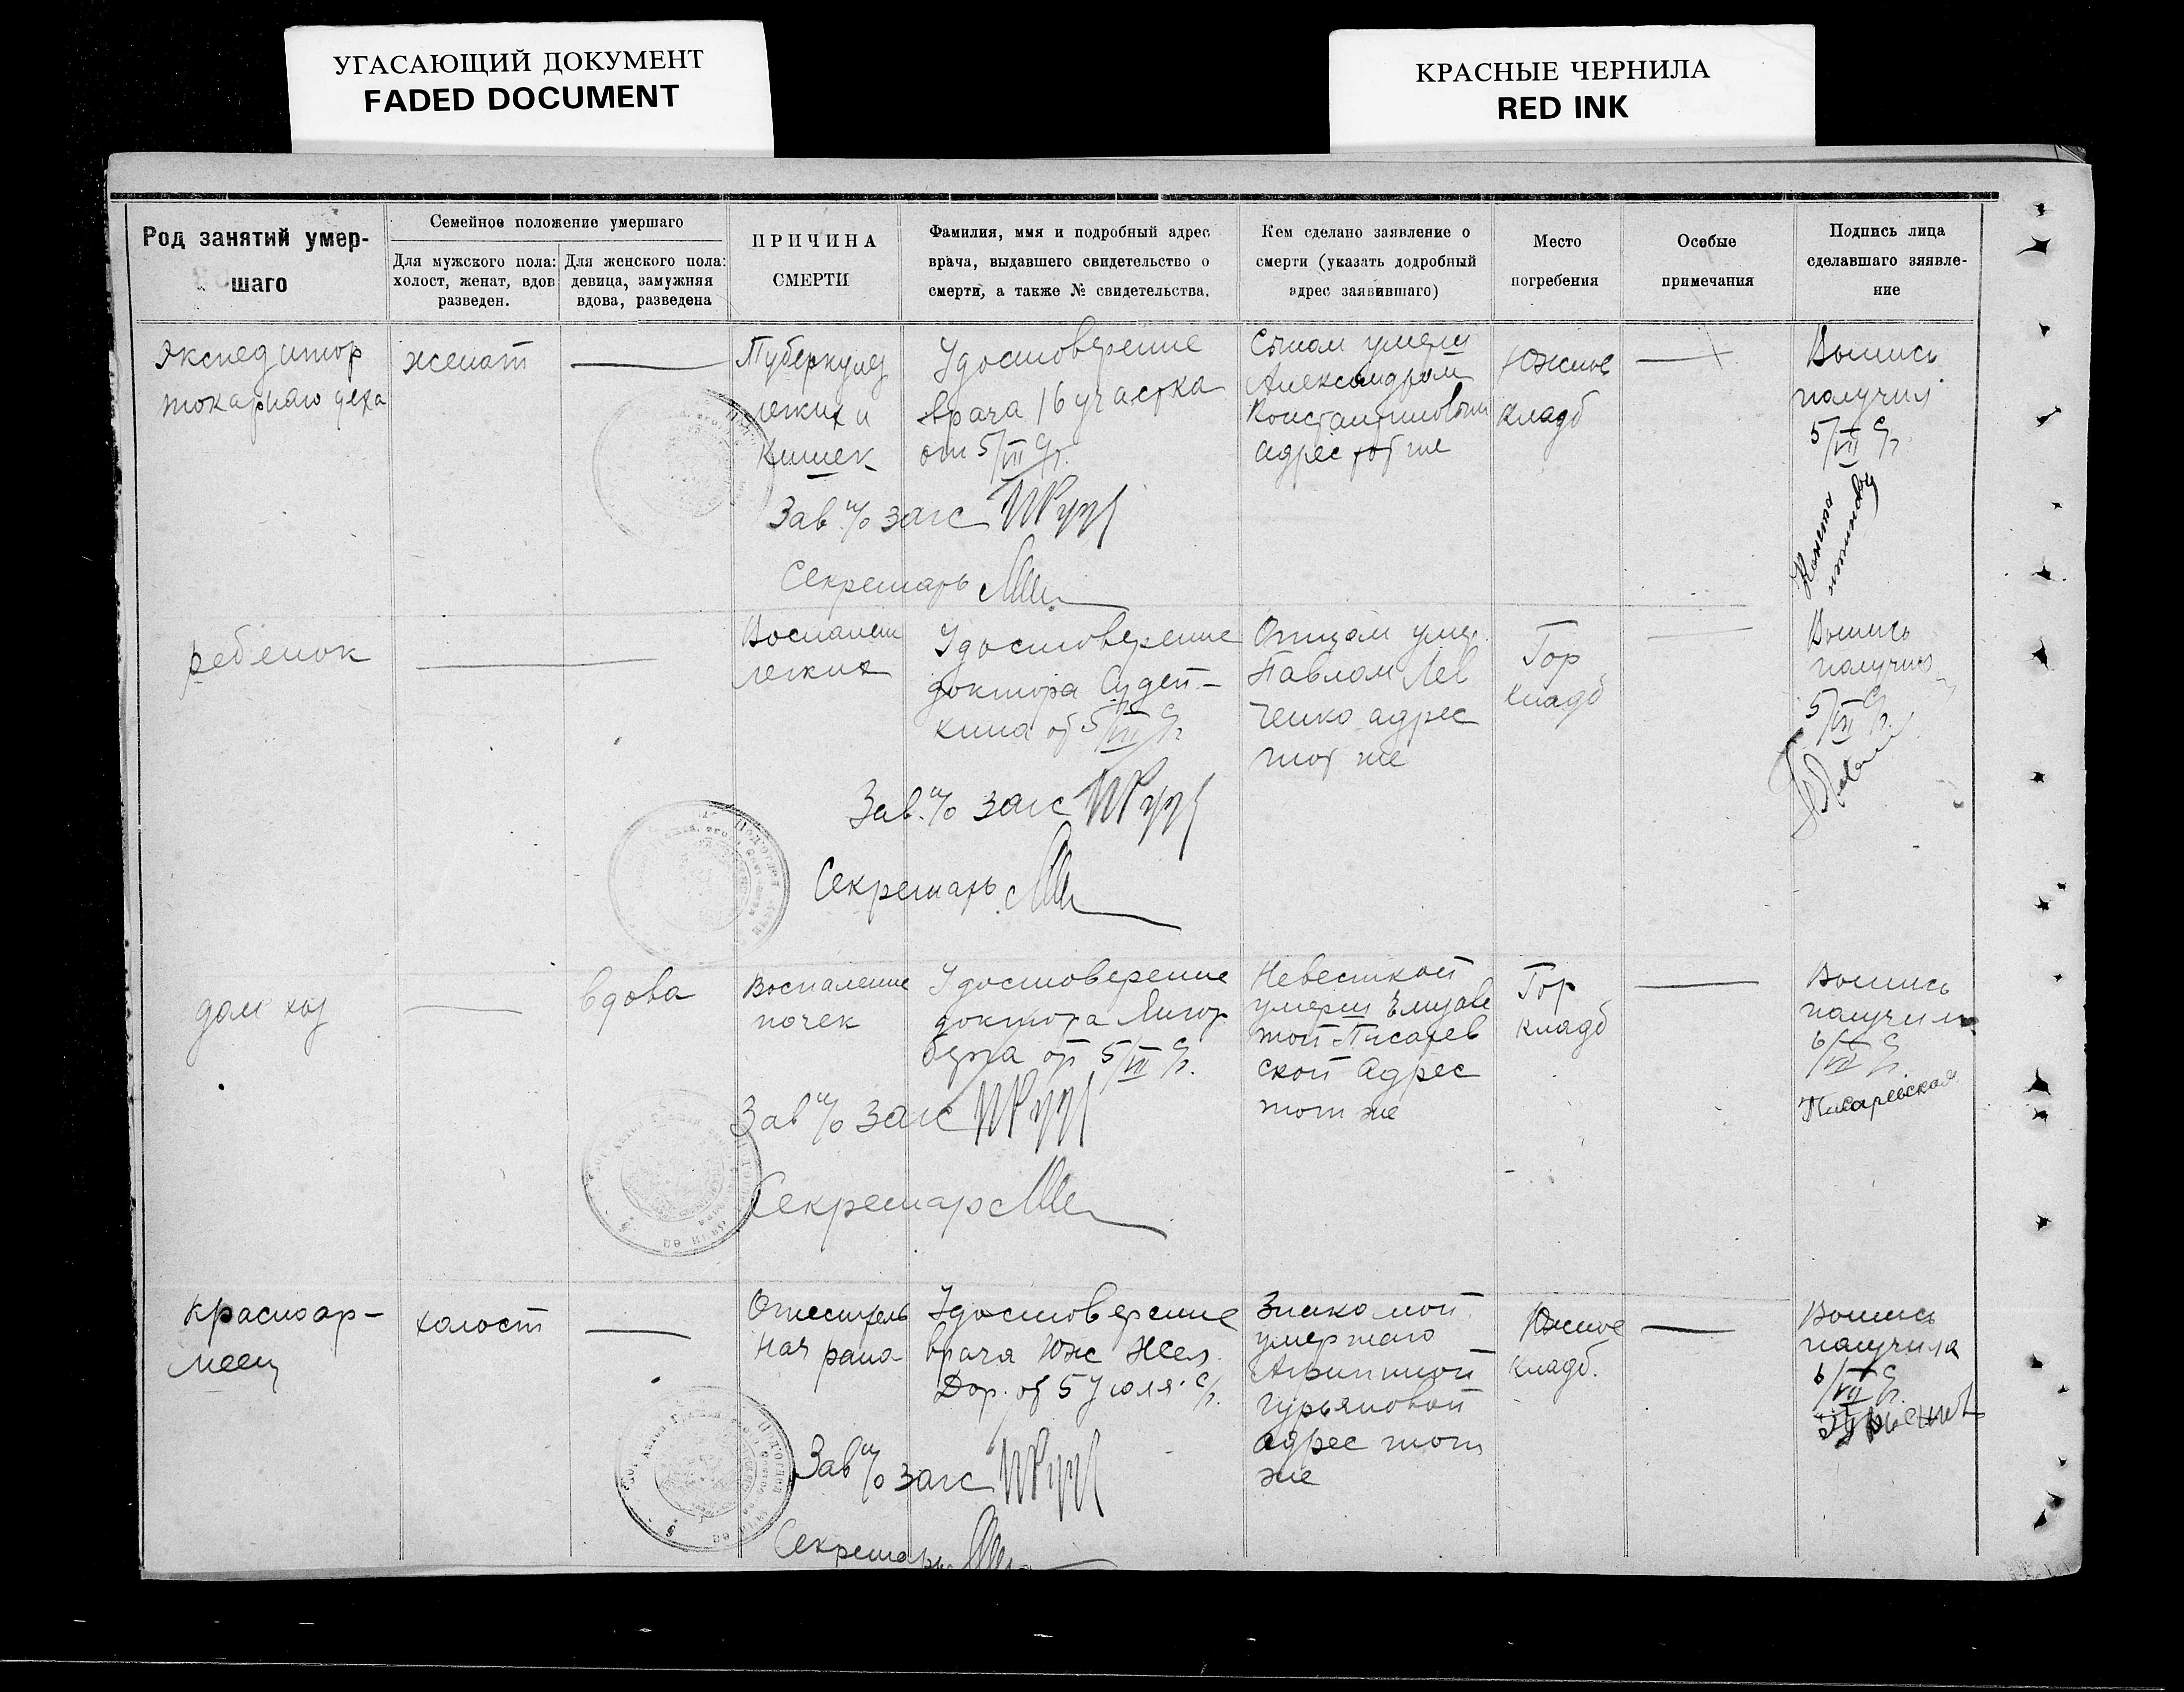 УГАСАЮЩИЙ ДОКУМЕНТ
FADED DOCUMENT
КРАСНЫЕ ЧЕРНИЛА
RED INK
Род занятий умер-
шаго
Семейное положение умершаго
Для мужского пола:
холост, женат, вдов
разведен.
Для женского пола:
девица, замужняя
вдова, разведена
ПРИЧИНА
СМЕРТИ
Фамилия, имя и подробный адрес
врача, выдавшего свидетельство о
смерти, а также № свидетельства.
Кем сделано заявление о
смерти (указать додробный
адрес заявившаго)
Место
погребения
Особые
примечания
Подпись лица
сделавшаго зяявле-
ние
Экспедитор
токарнаго цеха
женат
Туберкулез
легких и
кишек
Удостоверение
врача 16 участка
от 5/VII с/г.
Сыном умерш
Александром
адрес тот же
Южное
кладб
Выпись
получил
5/VII с/г.
Зав. п/о загс
Секретарь
ребенок
Воспален
легких
Удостоверение
доктора Судей-
кина от 5/VII с/г
Отцом умер.
Павлом Лев
ченко адрес
тот же
Гор
кладб
Выпись
получил
5/VII с/г.
Зав. п/о загс
Секретарь
дом хоз
вдова
Воспаление
почек
Удостоверение
доктора
от 5/VII с/г.
Невесткой
умерш Елизаве
той Писарев
ской адрес
тот же
Гор
кладб
Выпись
получила
6/VII с/г
Писаревская
Зав п/о загс
Секретарь
красноар-
меец
холост
Огнестрель
ная рана
Удостоверение
врача Юж Жел.
Дор. от 5 Июля с/г.
Знакомой
умершаго
Гурьяновой
адрес тот
же
Южное
кладб.
Выпись
получила
6/VII с/г
Зав п/о загс
Секретарь